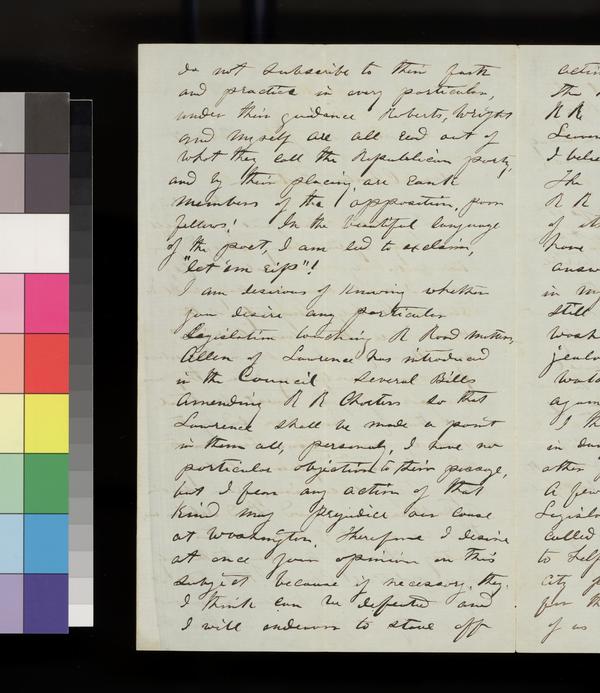 do not subscribe to their faith
and practice in every particular,
under their guidance Roberts, Wright
and myself are all read out of
what they call the Republican party,
and by their placing, are rank
members of the opposition, poor
fellows! In the beautiful language
of the poet, I am led to exclaim,
"let 'em rip"!
I am desirous of knowing whether
you desire any particular
Legislation touching R Road matters,
Allen of Lawrence has introduced
in the Council Several Bills
amending R R Charters so that
Lawrence shall be made a point
in them all, personally, I have no
particular objection to their passage,
but I fear any action of that
kind may prejudice our cause
at Washington. Therefore I desire
at once your opinion on this
subject because if necessary, they
I think can be defeated and
I will endeavor to stave off
The
R R
I
The
R R
of
have
in my
still
I th
in
other
A few
called
to help
city
for th
of us